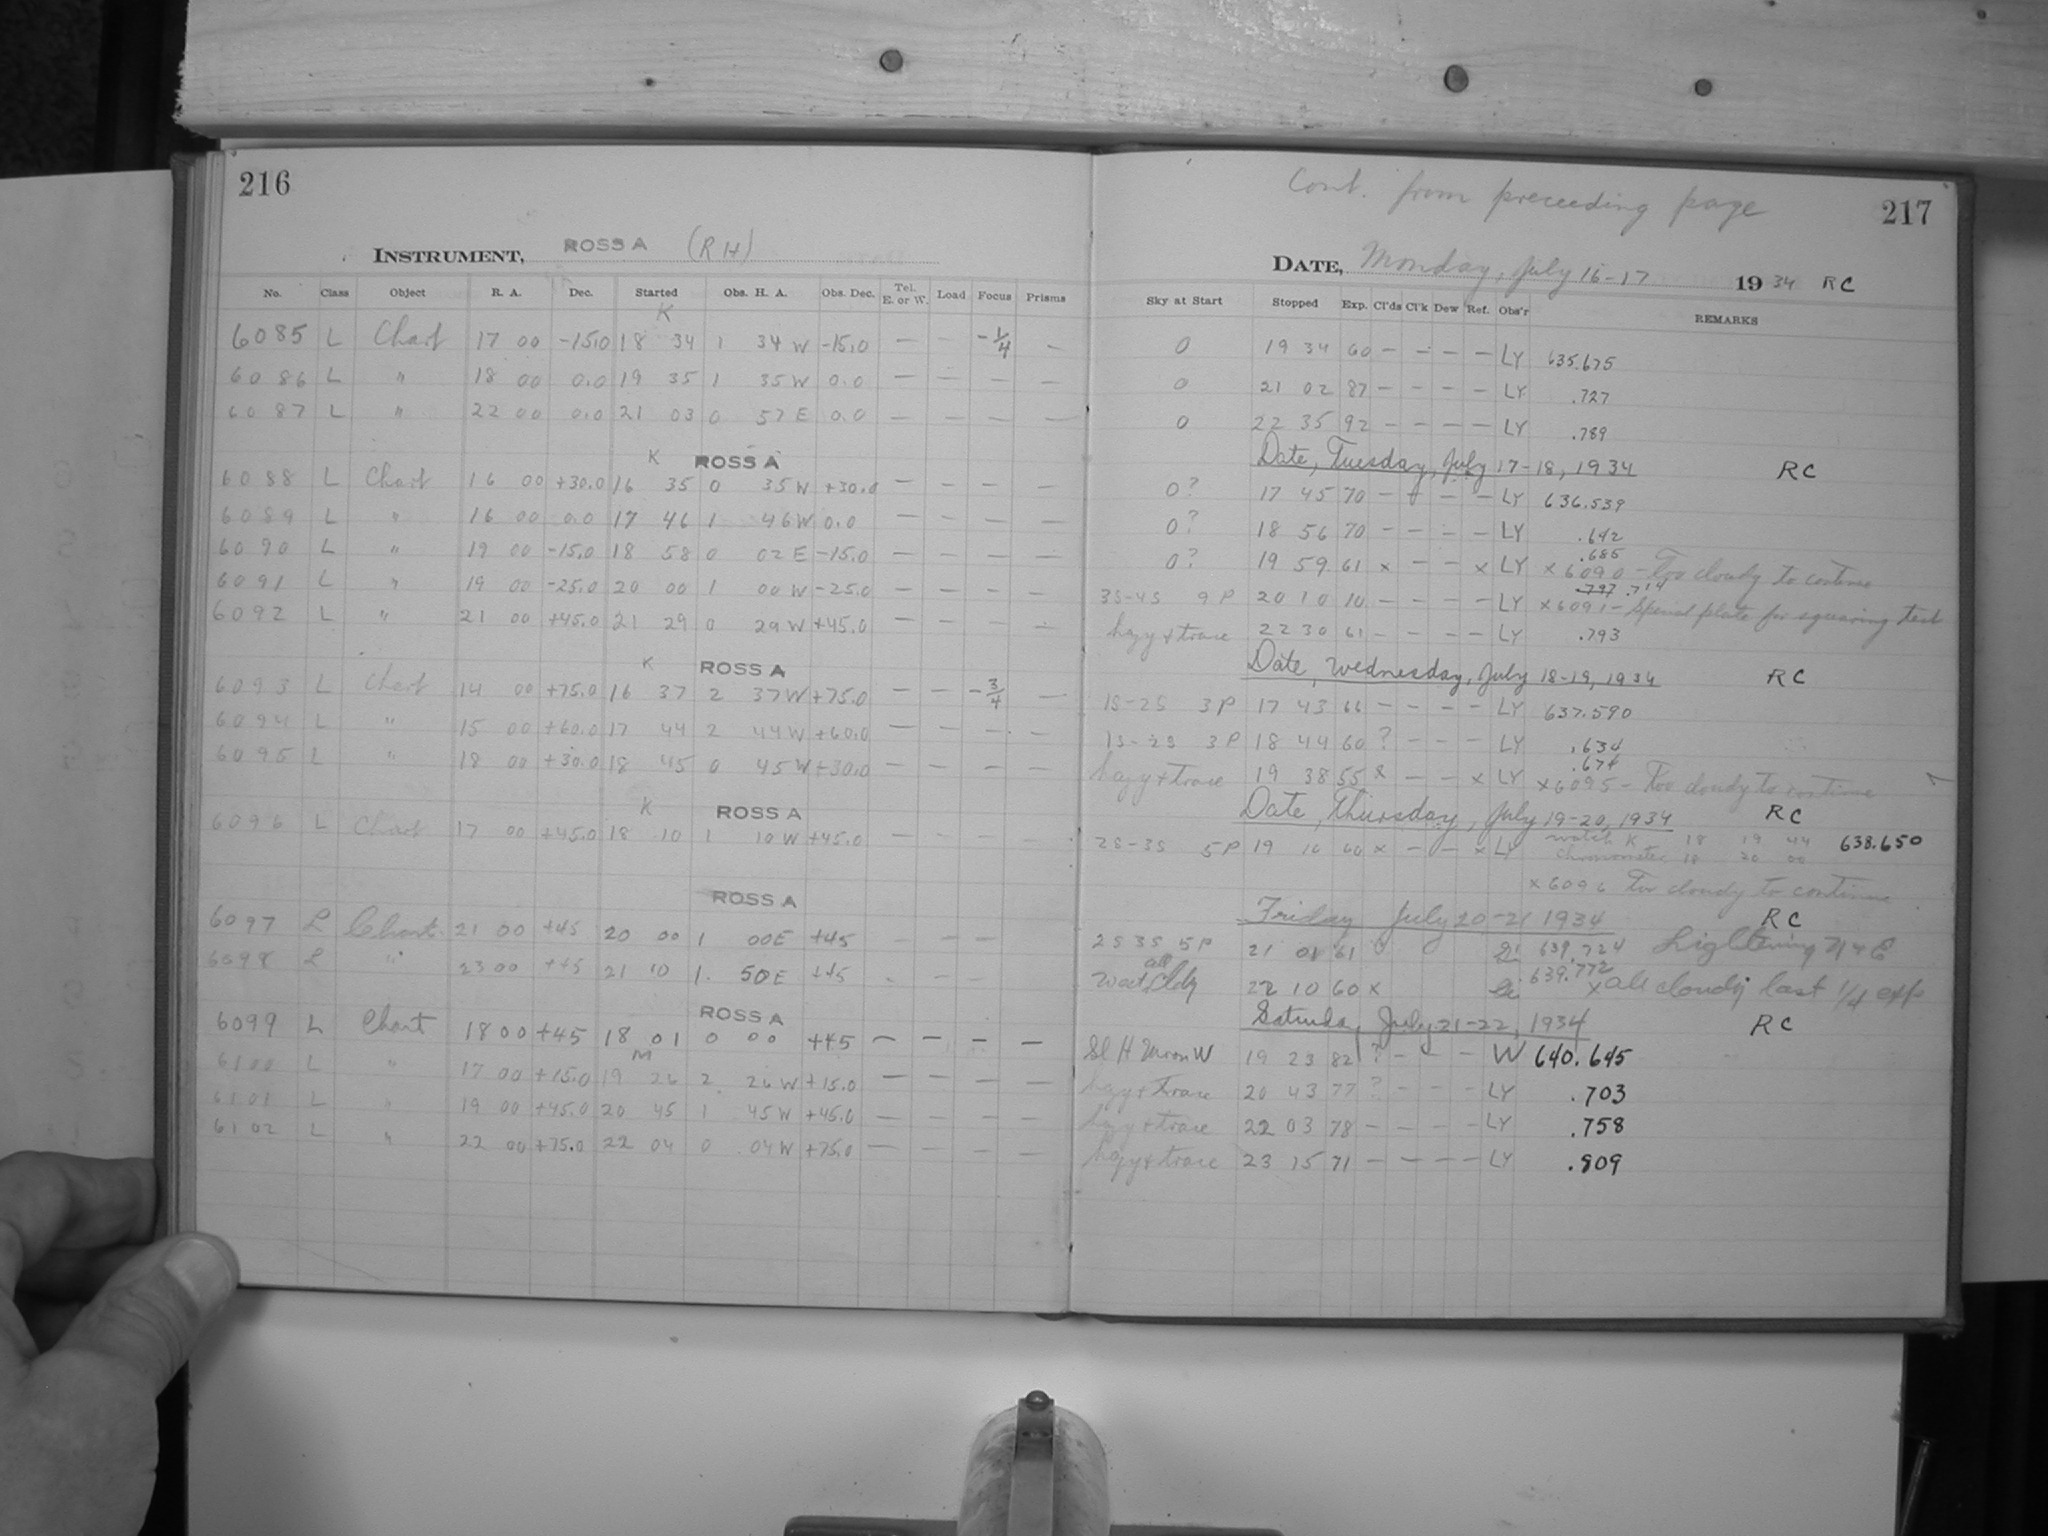 216
INSTRUMENT, ROSS A (RH)
No. Class Object R. A. Dec. Started Obs. H. A. Obs. Dec. Tel. E. or W. Load Focus Prisms
K
6085 L Chart 17 00 -15.0 18 34 1 34 W -15.0 — — -1/4 —
6086 L " 18 00 0.0 19 35 1 35 W 0.0 — — — —
6087 L " 22 00 0.0 21 03 0 57 E 0.0 — — — —
K ROSS A
6088 L Chart 16 00 +30.0 16 35 0 35 W +30.0 — — — —
6089 L " 16 00 0.0 17 46 1 46 W 0.0 — — — —
6090 L " 19 00 -15.0 18 58 0 02 E -15.0 — — — —
6091 L " 19 00 -25.0 20 00 1 00 W -25.0 — — — —
6092 L " 21 00 +45.0 21 29 0 29 W +45.0 — — — —
K ROSS A
6093 L Chart 14 00 +75.0 16 37 2 37 W +75.0 — — -3/4 —
6094 L " 15 00 +60.0 17 44 2 44 W +60.0 — — — —
6095 L " 18 00 +30.0 18 45 0 45 W +30.0 — — — —
K ROSS A
6096 L Chart 17 00 +45.0 18 10 1 10 W +45.0 — — — —
ROSS A
6097 L Chart 21 00 +45 20 00 1 00 E +45 — — —
6098 L " 23 00 +45 21 10 1. 50 E +45 — — —
ROSS A
6099 L Chart 18 00 +45 18 01 0 00 +45 — — — —
M
6100 L " 17 00 +15.0 19 26 2 26 W +15.0 — — — —
6101 L " 19 00 +45.0 20 45 1 45 W +45.0 — — — —
6102 L " 22 00 +75.0 22 04 0 04 W +75.0 — — — —
Cont. from preceeding page
217
DATE, Monday, July 16-17 1934 RC
Sky at Start Stopped Exp. Cl'ds Cl'k Dew Ref. Obs'r REMARKS
0 19 34 60 — — — — LY 635.675
0 21 02 87 — — — — LY .727
0 22 35 92 — — — — LY .789
Date, Tuesday, July 17-18, 1934 RC
0? 17 45 70 — — — — LY 636.539
0? 18 56 70 — — — — LY .642
.685
0? 19 59 61 x — — x LY x6090 - Too cloudy to continue
.714
3S-4S 9P 20 10 10 — — — — LY x6091 - Special plate for squaring test
hazy + trace 22 30 61 — — — — LY .793
Date, Wednesday, July 18-19, 1934 RC
1S-2S 3P 17 43 66 — — — — LY 637.590
1S-2S 3P 18 44 60 ? — — — LY .634
.674
hazy + trace 19 38 55 x — — x LY x6095 - Too cloudy to continue
Date, Thursday, July 19-20, 1934 RC
2S-3S 5P 19 10 60 x — — x LY watch K 18 19 44 638.650
chronometer 18 20 00
x6096 Too cloudy to continue
Friday July 20-21 1934 RC
2S 3S 5P 21 01 61 639.724 Lightening
all
West Cldy 22 10 60 x 639.772 x all cloudy last 1/4 exp
Saturday July 21-22, 1934 RC
Sl H Moon W 19 23 82 ? — — — W 640.645
hazy + trace 20 43 77 ? — — — LY .703
hazy + trace 22 03 78 — — — — LY .758
hazy + trace 23 15 71 — — — — LY .809